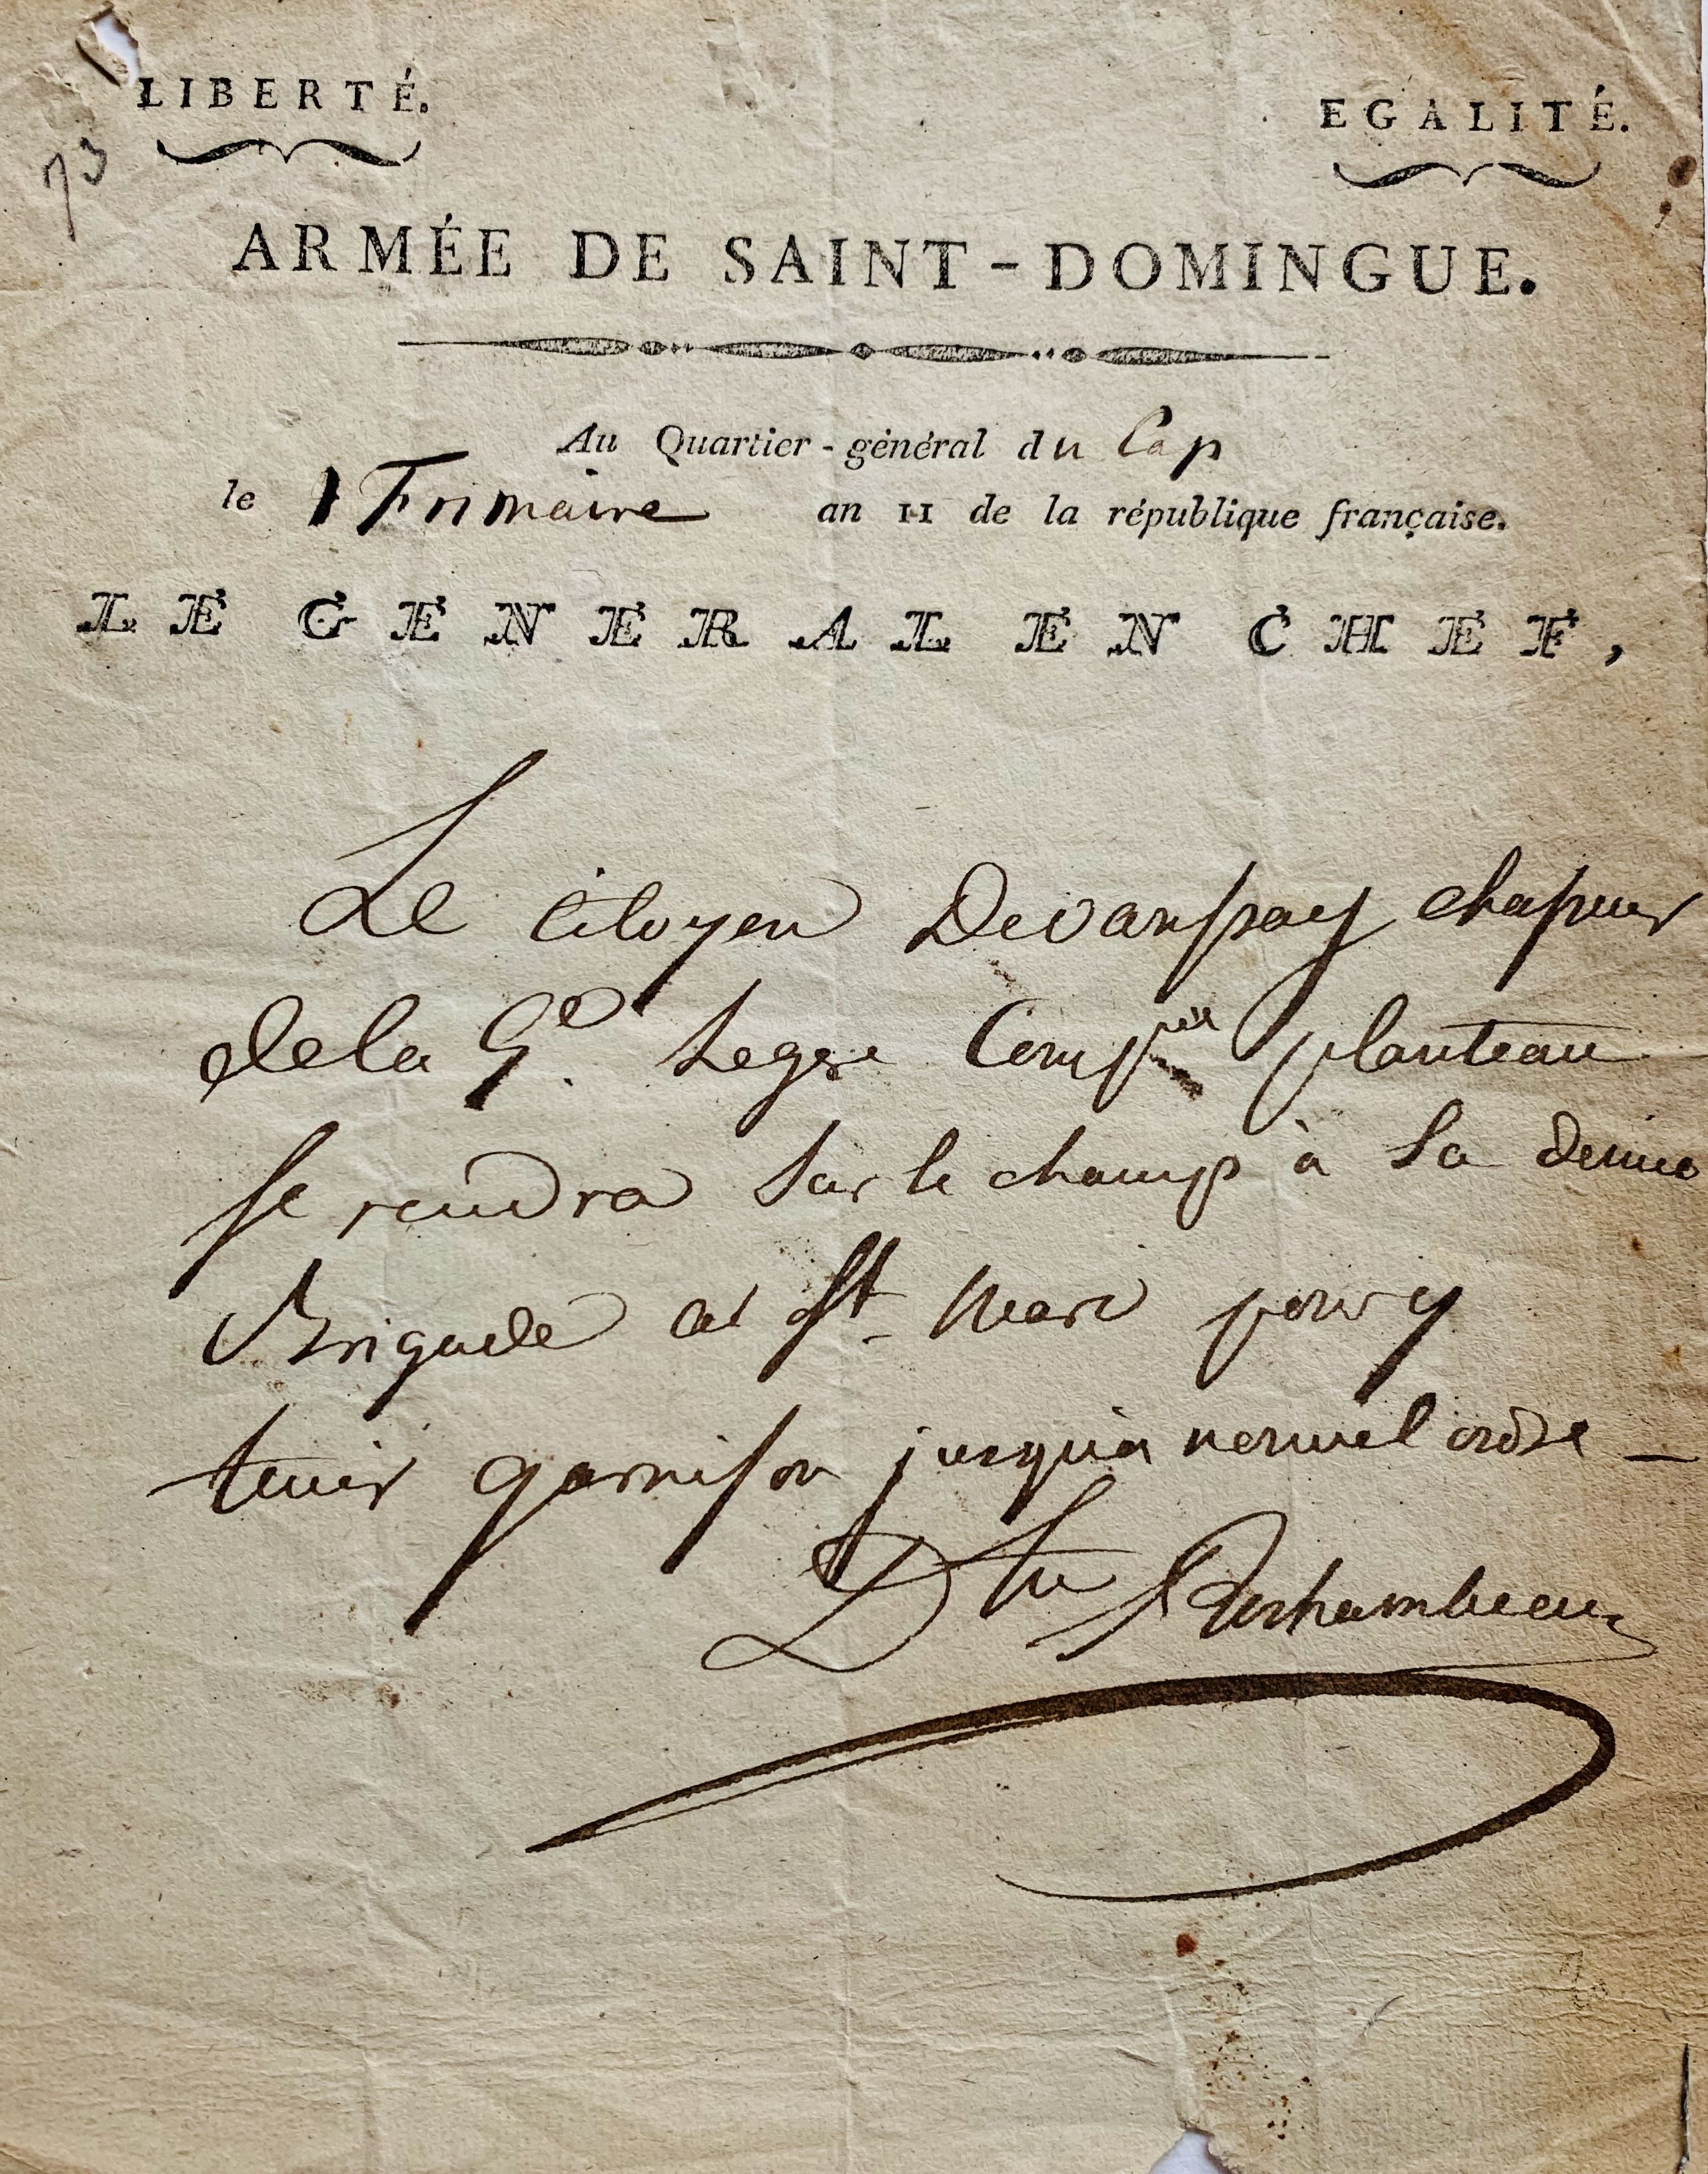 LIBERTÉ. EGALITÉ.
73
ARMÉE DE SAINT-DOMINGUE.
Au Quartier-général du Cap
le 1 Frimaire an 11 de la république française.
LE GENERAL EN CHEF,
Le Citoyen
dela Legere Comp.
se rendra sur le champ à sa demie
Brigade at St Marc pour y
tenir garnison jusqu'à nouvel ordre —
Dtn Rochambeau